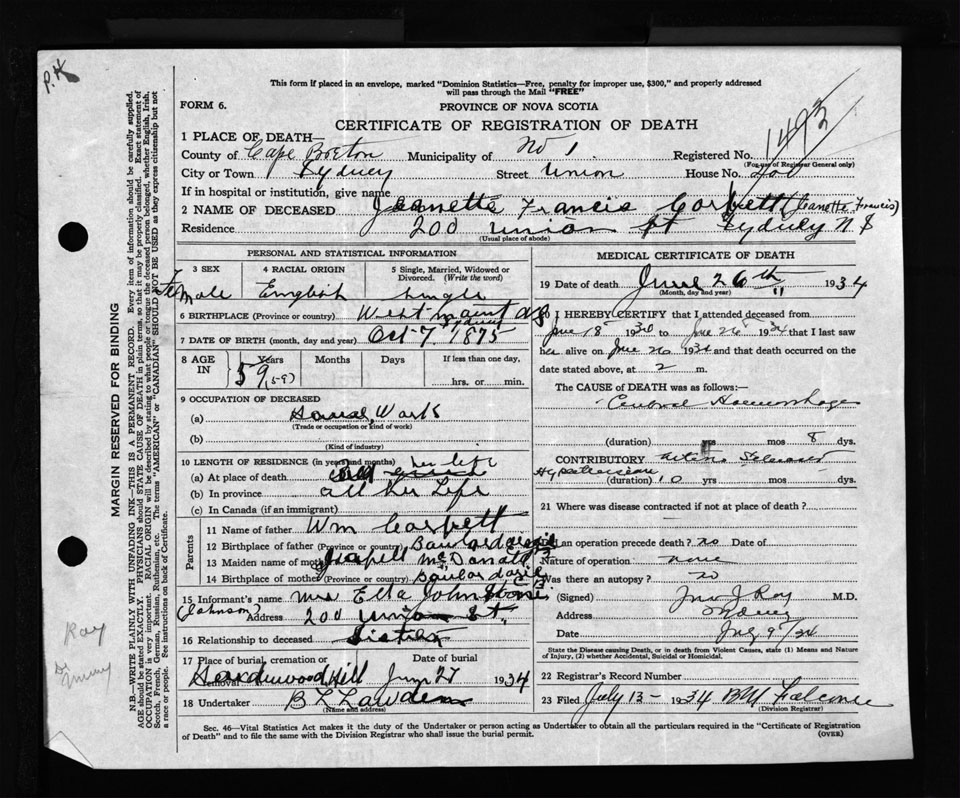 P.H
This form if placed in an envelope, marked "Dominion Statistics—Free, penalty for improper use, $300," and properly addressed
will pass through the Mail "FREE"
FORM 6.
PROVINCE OF NOVA SCOTIA
CERTIFICATE OF REGISTRATION OF DEATH
1493
1 PLACE OF DEATH—
County of Cape Breton Municipality of No 1 Registered No.
(For use of Registrar General only)
City or Town Sydney Street Union House No. 200
If in hospital or institution, give name
2 NAME OF DECEASED Jeanette Francis Corbett (Jeanette Francis)
Residence 200 Union St Sydney N S
(Usual place of abode)
PERSONAL AND STATISTICAL INFORMATION
3 SEX 4 RACIAL ORIGIN 5 Single, Married, Widowed or Divorced. (Write the word)
Female English Single
6 BIRTHPLACE (Province or country) West mount
Sydney
7 DATE OF BIRTH (month, day and year) Oct 7. 1875
8 AGE IN Years Months Days If less than one day,
59 (59) hrs. or min.
9 OCCUPATION OF DECEASED
(a) House Work
(Trade or occupation or kind of work)
(b)
(Kind of industry)
10 LENGTH OF RESIDENCE (in years and months) her life
(a) At place of death
(b) In province all her Life
(c) In Canada (if an immigrant)
Parents
11 Name of father Wm Corbett
12 Birthplace of father (Province or country) Boulardarie
13 Maiden name of mother McDonald
14 Birthplace of mother (Province or country) Boulardarie C B
15 Informant's name Mrs Ella Johnstone
(Johnson) Address 200 Union St.
16 Relationship to deceased Sister
17 Place of burial, cremation or removal Date of burial
Hardwood Hill June 27 1934
18 Undertaker
(Name and address)
MEDICAL CERTIFICATE OF DEATH
19 Date of death June 26th 1934
(Month, day and year)
I HEREBY CERTIFY that I attended deceased from
June 18 1934 to June 26 1934 that I last saw
her alive on June 26 1934 and that death occurred on the
date stated above, at 2 m.
The CAUSE OF DEATH was as follows:—
Cerebral Haemorrhage
(duration) yrs mos 8 dys.
CONTRIBUTORY Arterio Sclerosis
Hypertension
(duration) 10 yrs mos dys.
21 Where was disease contracted if not at place of death?
an operation precede death? no Date of
Nature of operation none
Was there an autopsy? no
(Signed) Jno J Roy M.D.
Address Sydney
Date July 9/34
State the Disease causing Death, or in death from Violent Causes, state (1) Means and Nature
of Injury, (2) whether Accidental, Suicidal or Homicidal.
22 Registrar's Record Number
23 Filed July 13 - 1934
(Division Registrar)
Sec. 46—Vital Statistics Act makes it the duty of the Undertaker or person acting as Undertaker to obtain all the particulars required in the "Certificate of Registration
of Death" and to file the same with the Division Registrar who shall issue the burial permit. (OVER)
MARGIN RESERVED FOR BINDING
N.B.—WRITE PLAINLY WITH UNFADING INK—THIS IS A PERMANENT RECORD. Every item of information should be carefully supplied.
AGE should be stated EXACTLY. PHYSICIANS should STATE CAUSE OF DEATH in plain terms, so that it may be properly classified. Exact statement of
OCCUPATION is very important. RACIAL ORIGIN will be described by stating to what people or tongue the deceased person belonged, whether English, Irish,
Scotch, French, German, Russian, Ruthenian, etc. The terms "AMERICAN" or "CANADIAN" SHOULD NOT BE USED as they express citizenship but not
a race or people. See instructions on back of Certificate.
Roy